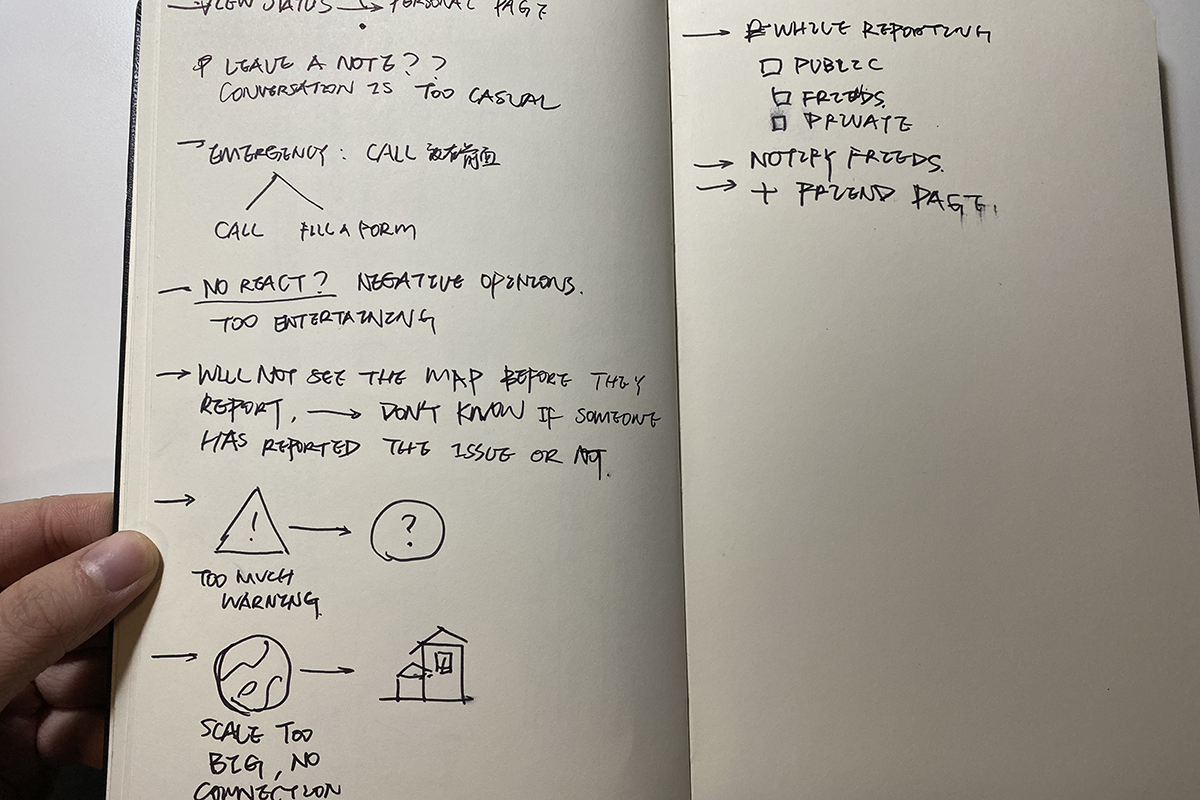 → VIEW STATUS → PERSONAL PAGE
LEAVE A NOTE? ?
CONVERSATION IS TOO CASUAL
EMERGENCY: CALL 放在前面
CALL FILL A FORM
NO REACT? NEGATIVE OPINIONS.
TOO ENTERTAINING
→ WILL NOT SEE THE MAP BEFORE THEY
REPORT, → DON'T KNOW IF SOMEONE
HAS REPORTED THE ISSUE OR NOT.
→ ! → ?
TOO MUCH
WARNING
SCALE TOO
BIG, NO
CONNECTION
→ WHILE REPORTING
PUBLIC
FRIENDS.
PRIVATE
→ NOTIFY FRIEDS.
→ + FRIEND PAGE.